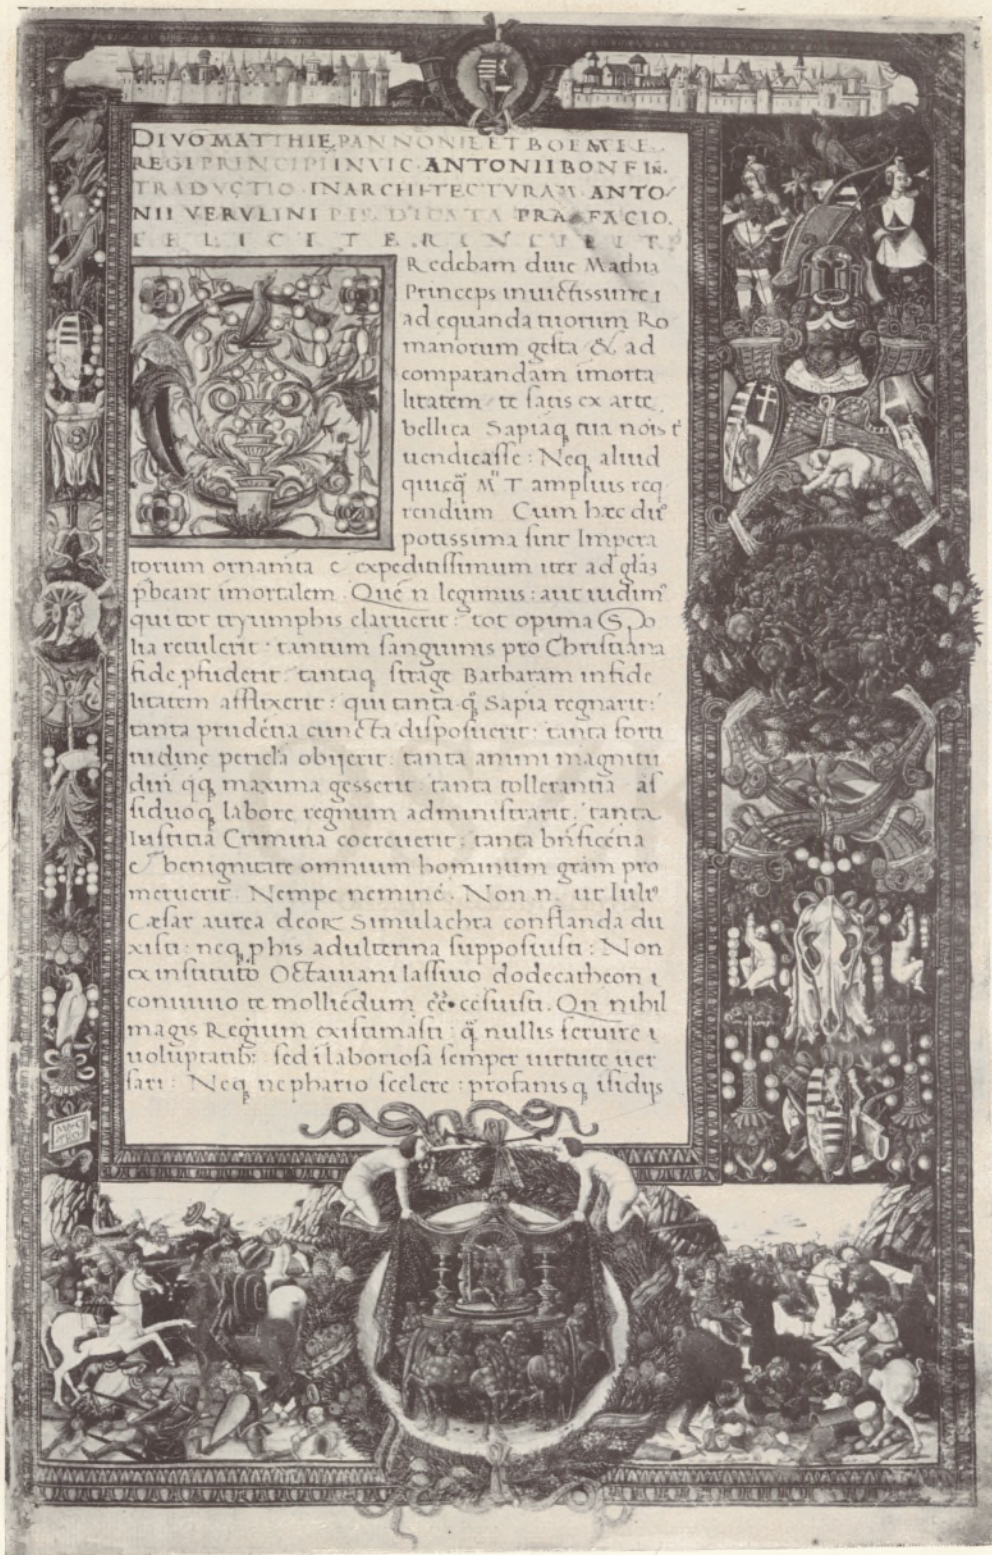 DIVO MATTHIE PANNONIE ET BOEMIE
REGI PRINCIPI INVIC ANTONII BONFIN.
TRADVCTIO IN ARCHITECTVRAM ANTO/
NII VERVLINI DICATA PRAEFACIO.
FELICITER INCIPIT
Redebam diue Mathia
Princeps inuictissime i
ad equanda tuorum Ro
manorum gesta & ad
comparandam imorta
litatem te satis ex arte
bellica Sapiaq tua nois
uendicasse : Neq aliud
quicq M T amplius req
rendum Cum hæc
potissima sint Impera
torum ornamta expeditissimum iter ad
pbeant imortalem . Que n legimus : aut
qui tot tryumphis claruerit : tot opima Spo
lia retulerit : tantum sanguinis pro Christiana
fide pfuderit : tantaq strage Barbaram infide
litatem afflixerit : qui tanta q Sapia regnarit :
tanta prudetia cuncta disposuerit : tanta forti
tudine pericla obijerit : tanta animi magnitu
din qq maxima gesserit : tanta tollerantia as
siduoq labore regnum administrarit : tanta
Iustitia Crimina coercuerit : tanta bnficetia
& benignitate omnium hominum gram pro
meruerit . Nempe nemine . Non n . ut Iuli9
Cæsar aurea deor Simulachra conflanda du
xisti : neq phis adulterina supposuisti : Non
ex instituto Octauiani lassiuo dodecatheon i
conuiuio te molliedum cesuisti . Qn nihil
magis Regium existimasti : q nullis seruire i
uoluptatib : sed i laboriosa semper uirtute uer
sari : Neq nephario scelere : profanisq isidijs